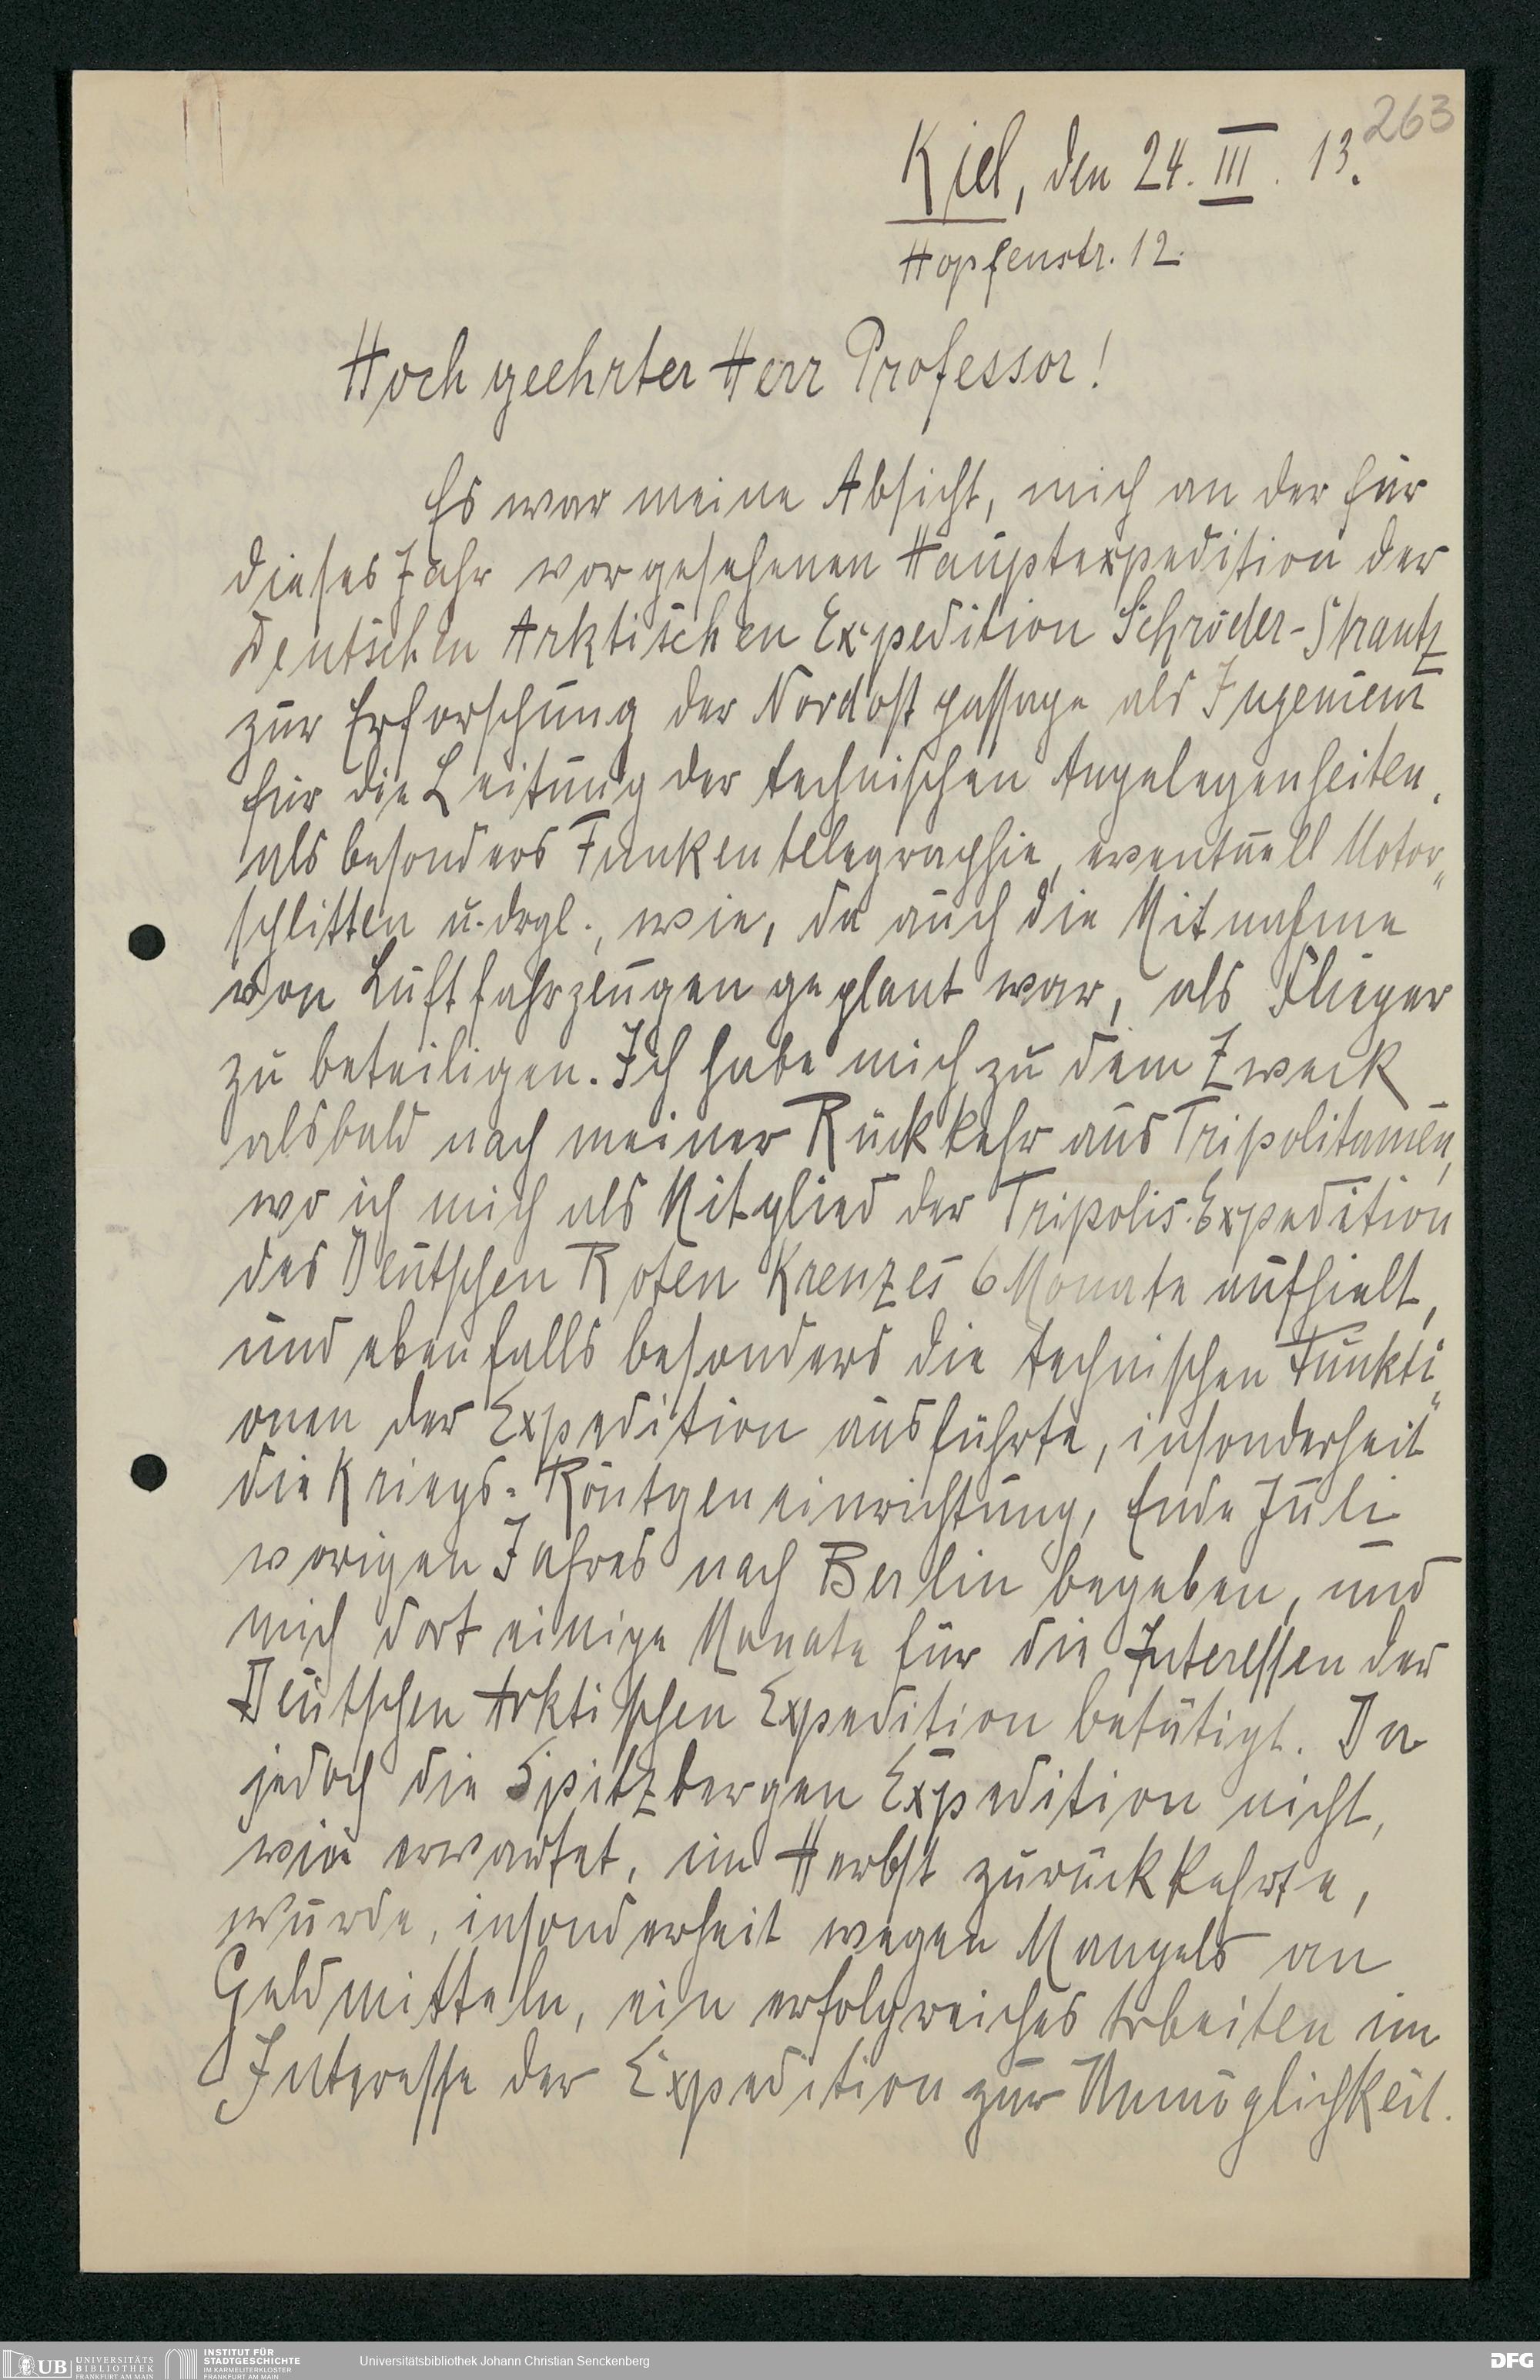 263
Kiel, den 24. III. 13.
Hopfenstr. 12.
Hochgeehrter Herr Professor!
Es war meine Absicht, mich an der für
dieses Jahr vorgesehenen Hauptexpedition der
Deutschen Arktischen Expedition Schröder-Strantz
zur Erforschung der Nordostpassage als Ingenieur
für die Leitung der technischen Angelegenheiten,
als besonders Funkentelegraphie, eventuell Motor„
schlitten u. drgl., wie, da auch die Mitnahme
von Luftfahrzeugen geplant war, als Flieger
zu beteiligen. Ich habe mich zu dem Zweck
alsbald nach meiner Rückkehr aus Tripolitanien,
wo ich mich als Mitglied der Tripolis-Expedition
des Deutschen Roten Kreuzes 6 Monate aufhielt,
und ebenfalls besonders die technischen Funkti„
onen der Expedition ausführte, insonderheit
die Kriegs-Röntgeneinrichtung, Ende Juli
vorigen Jahres nach Berlin begeben, und
mich dort einige Monate für die Interessen der
Deutschen Arktischen Expedition betätigt. Da
jedoch die Spitzbergen Expedition nicht,
wie erwartet, im Herbst zurückkehrte,
wurde, insonderheit wegen Mangels an
Geldmitteln, ein erfolgreiches Arbeiten im
Interesse der Expedition zur Unmöglichkeit.
UB UNIVERSITÄTS BIBLIOTHEK FRANKFURT AM MAIN
INSTITUT FÜR STADTGESCHICHTE IM KARMELITERKLOSTER FRANKFURT AM MAIN
Universitätsbibliothek Johann Christian Senckenberg
DFG